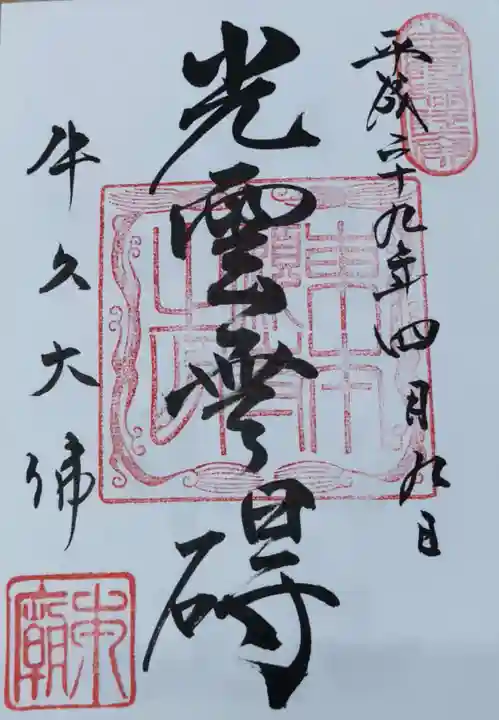 平成二十九年四月九日
光雲無碍
牛久大佛
東廟